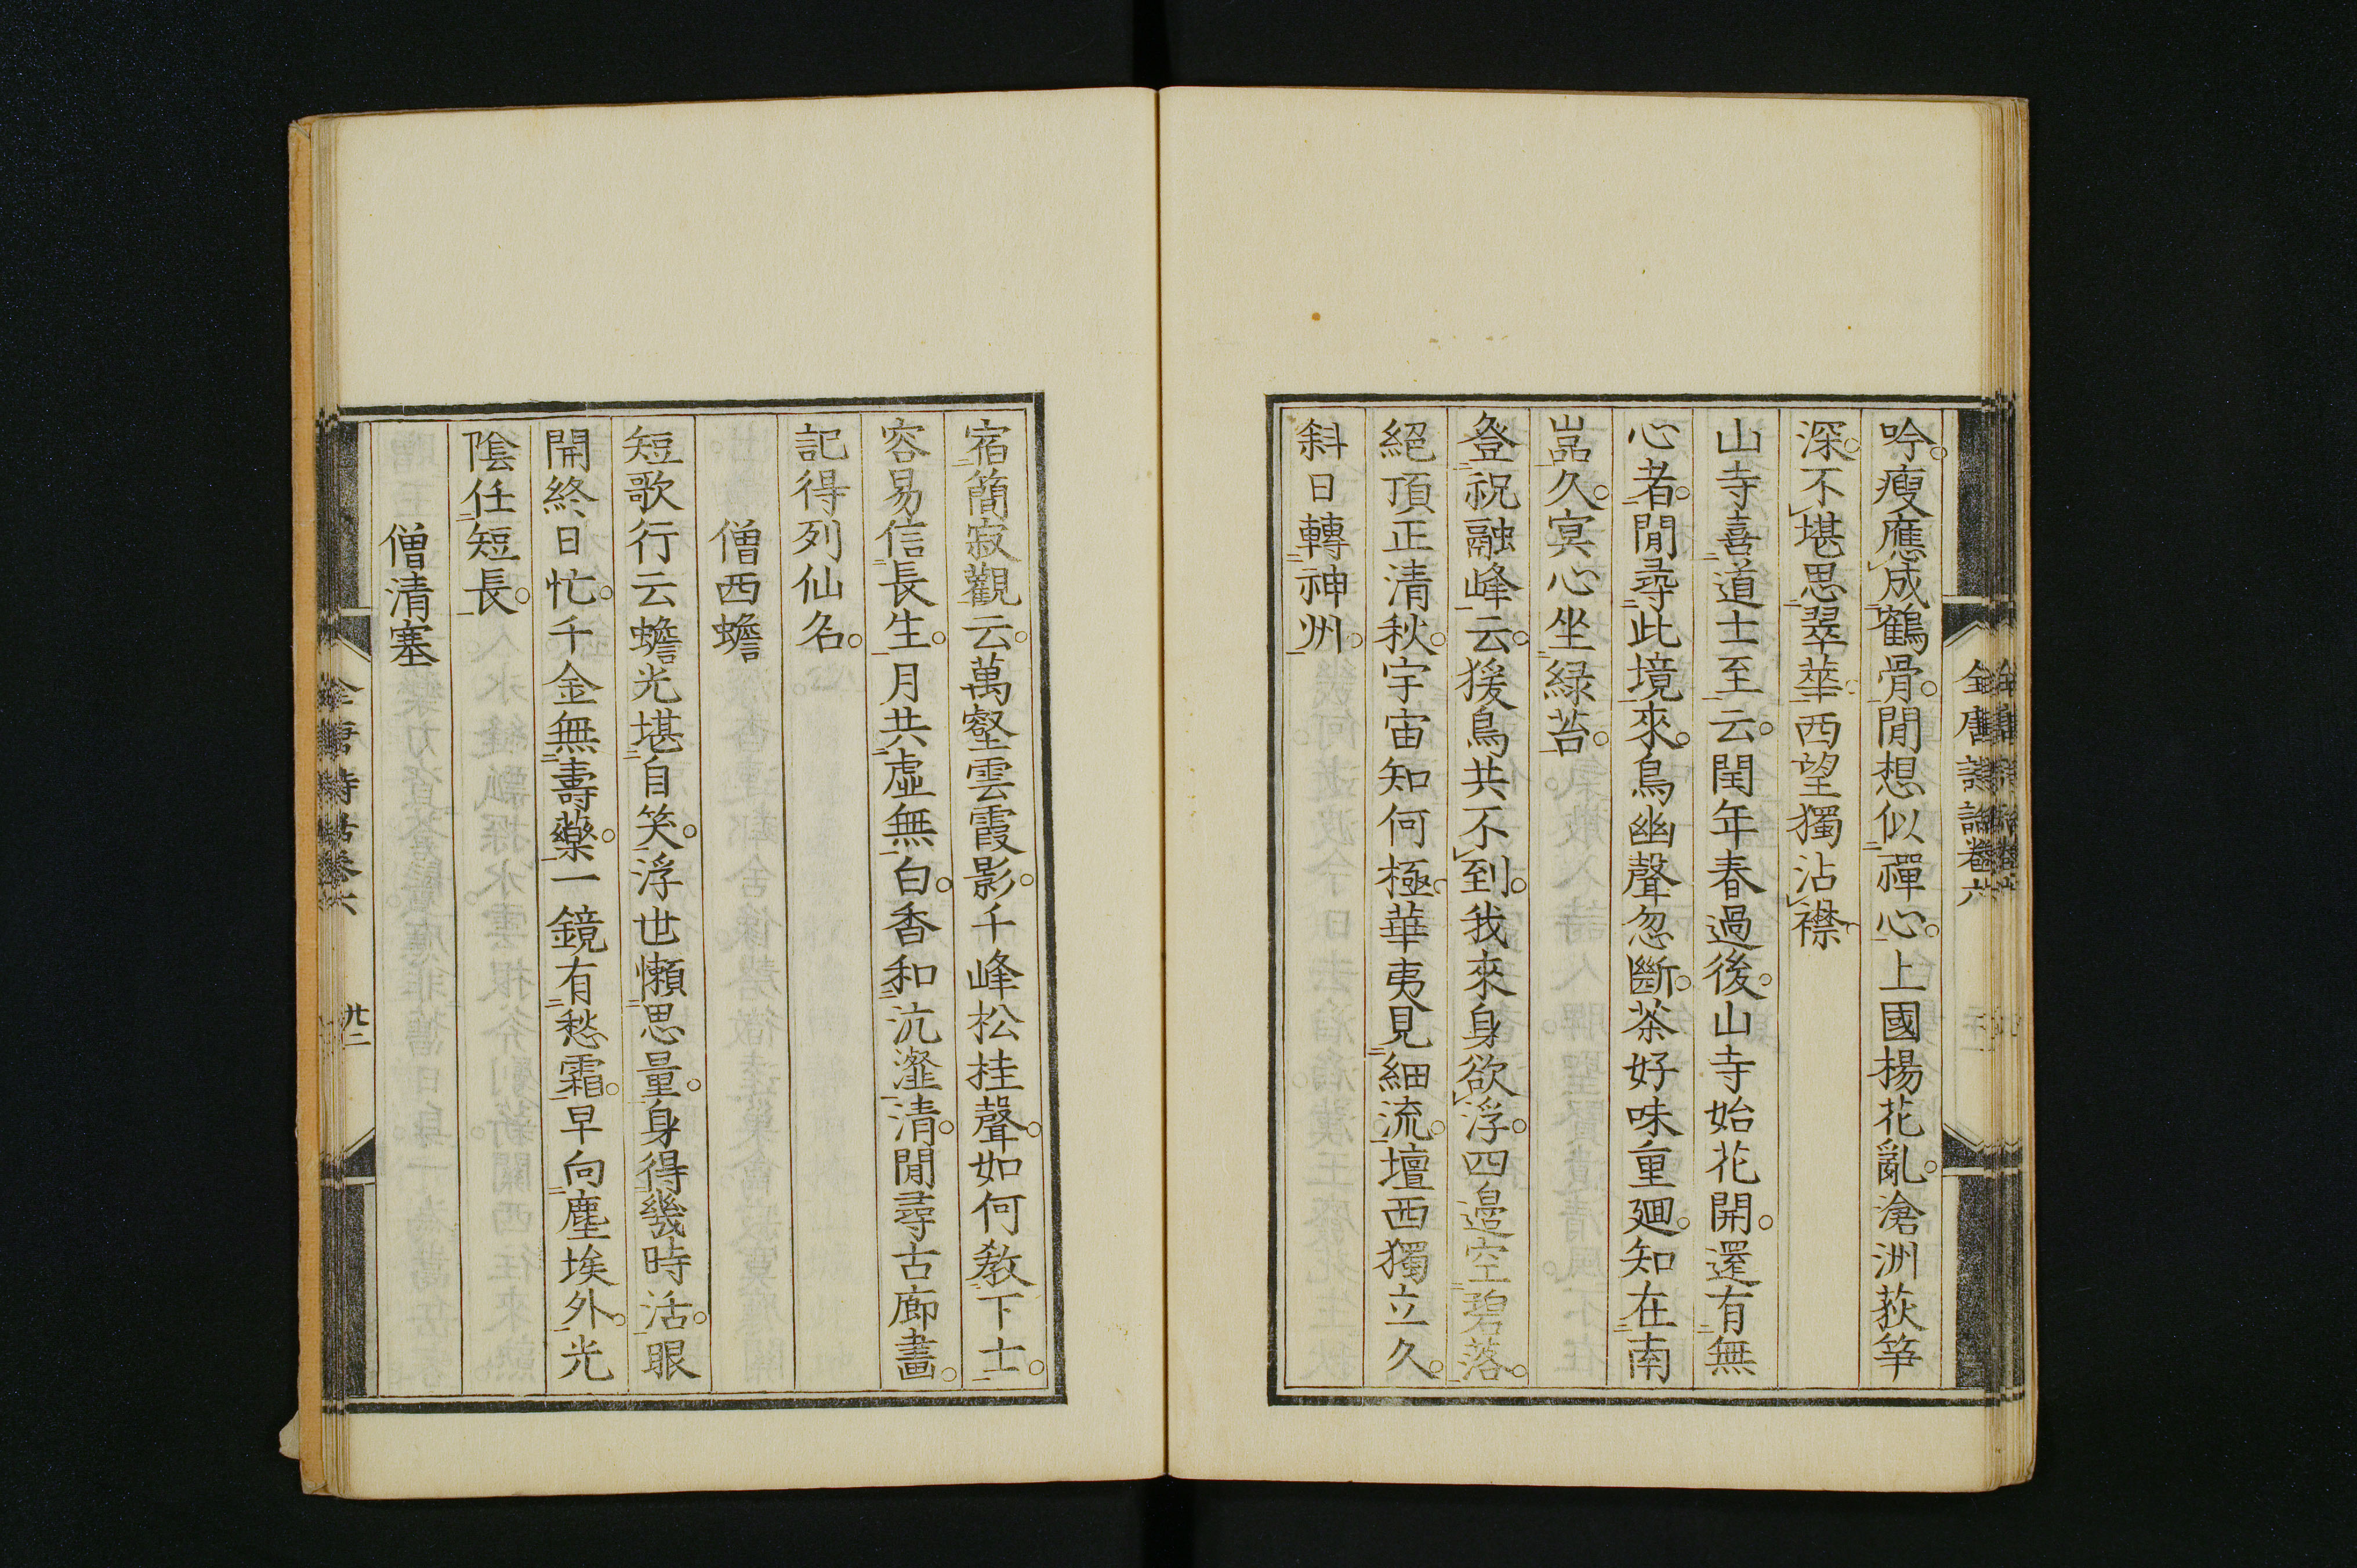 吟。瘦應成鶴骨。閒想似禪心。上國楊花亂。滄洲荻筍
深。不堪思翠華。西望獨沾襟
山寺喜道士至云。閏年春過後。山寺始花開。還有無
心者。閒尋此境來。鳥幽聲忽斷。茶好味重廻。知在南
嵓久。冥心坐綠苔。
登祝融峰云。猨鳥共不到。我來身欲浮。四邉空碧落。
絕頂正清秋。宇宙知何極。華夷見細流。壇西獨立久。
斜日轉神州。
全唐詩話卷六
宿簡寂觀云。萬壑雲霞影。千峰松桂聲。如何敎下士。
容易信長生。月共虛無白。香和沆瀣清。閒尋古廊畫。
記得列仙名。
僧西蟾
短歌行云蟾光堪自笑。浮世懶思量。身得幾時活。眼
開終日忙。千金無壽藥。一鏡有愁霜。早向塵埃外。光
陰任短長。
僧清塞
全唐詩話卷六
廿二